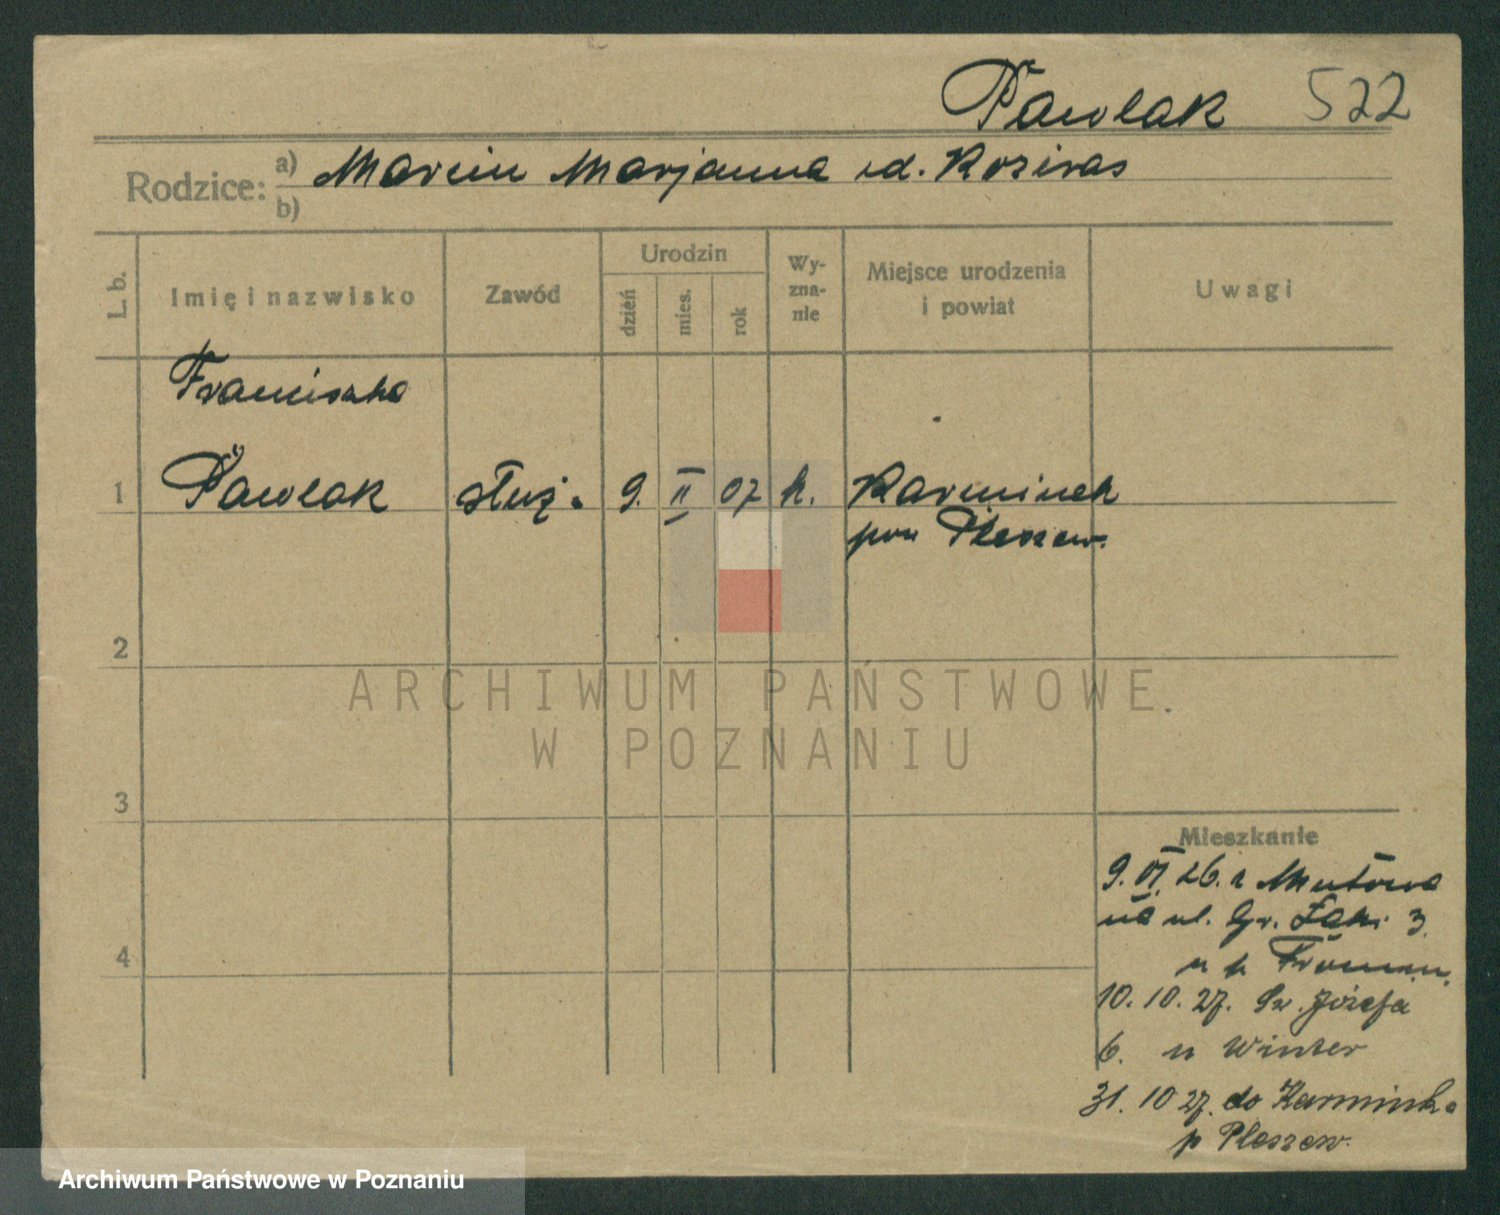 Pawlak 522
Rodzice: a) Marcin Marjanna rd.
b)
L. b.
Imię i nazwisko
Zawód
Urodzin
dzień
mies.
rok
Wy-
zna-
nie
Miejsce urodzenia
i powiat
Uwagi
Franciszka
1 Pawlak służ. 9. II 07 k. Karminek
pow Pleszew.
2
ARCHIWUM PAŃSTWOWE
W POZNANIU
3
4
Mieszkanie
9. VI. 26. z
na ul. Gr. Łąki 3.
u p
10. 10. 27. Św. Józefa
6. u Winter
31. 10 27. do Karminka
p Pleszew.
Archiwum Państwowe w Poznaniu